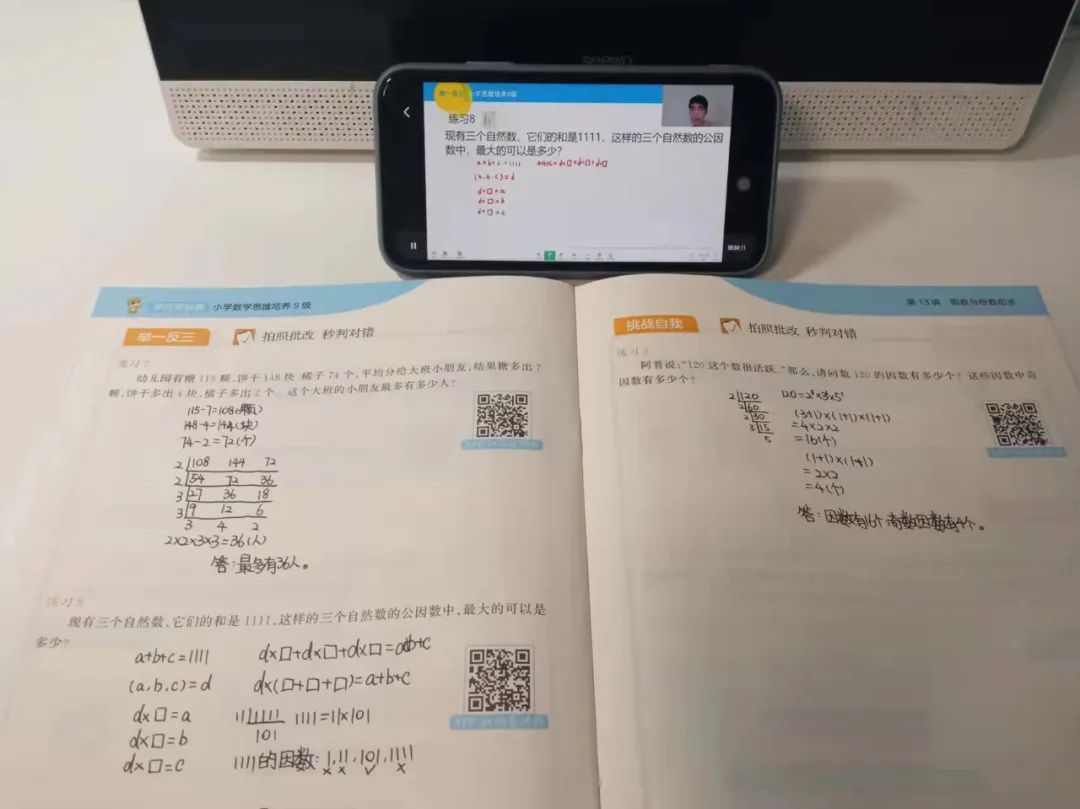 小学思维培养9级
练习8
现有三个自然数，它们的和是1111，这样的三个自然数的公因
数中，最大的可以是多少？
a+b+c=1111 a+b+c=d×□+d×□+d×□
(a,b,c)=d
d×□=a
d×□=b
d×□=c
小学数学思维培养9级
举一反三 拍照批改 秒判对错
练习7
幼儿园有糖115颗,饼干148块,橘子74个,平均分给大班小朋友,结果糖多出7
颗,饼干多出4块,橘子多出2个。这个大班的小朋友最多有多少人?
115-7=108(颗)
148-4=144(块)
74-2=72(个)
2 108 144 72
2 54 72 36
3 27 36 18
3 9 12 6
3 4 2
2×2×3×3=36(人)
答:最多有36人。
练习8
现有三个自然数,它们的和是1111,这样的三个自然数的公因数中,最大的可以是
多少?
a+b+c=1111 d×□+d×□+d×□=a+b+c
(a,b,c)=d d×(□+□+□)=a+b+c
d×□=a 11 1111 1111=11×101
d×□=b 101
d×□=c 1111的因数:1,11,101,1111
× × ✓ ×
第13讲 因数与倍数初步
挑战自我 拍照批改 秒判对错
练习9
阿普说:“120这个数很活跃。”那么,请问数120的因数有多少个?这些因数中奇
因数有多少个?
2 120 120=2³×3×5¹
2 60
2 30 (3+1)×(1+1)×(1+1)
3 15 =4×2×2
5 =16(个)
(1+1)×(1+1)
=2×2
=4(个)
答:因数有16个,奇数因数有4个。